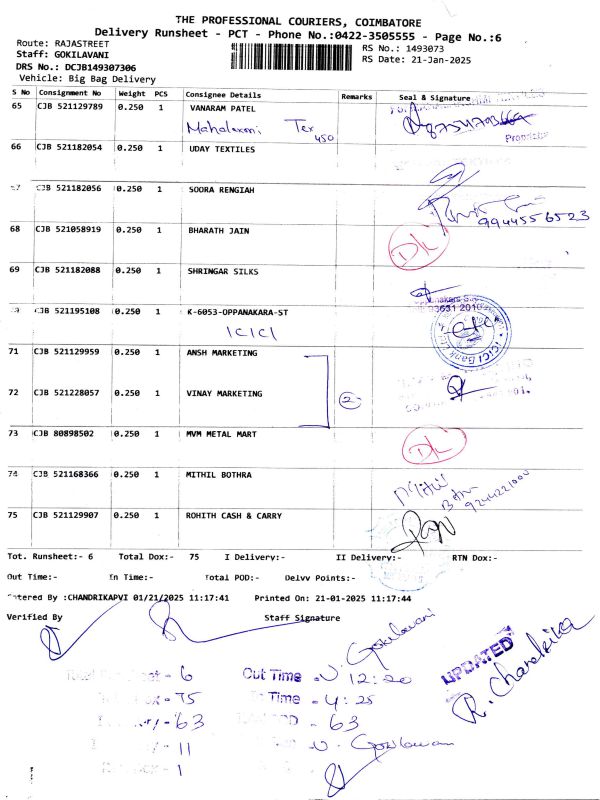 THE PROFESSIONAL COURIERS, COIMBATORE
Delivery Runsheet - PCT - Phone No.:0422-3505555 - Page No.:6
Route: RAJASTREET
RS No.: 1493073
Staff: GOKILAVANI
RS Date: 21-Jan-2025
DRS No.: DCJB149307306
Vehicle: Big Bag Delivery
S No Consignment No Weight PCS Consignee Details Remarks Seal & Signature
65 CJB 521129789 0.250 1 VANARAM PATEL
Mahalaxmi Tex
450
66 CJB 521182054 0.250 1 UDAY TEXTILES
67 CJB 521182056 0.250 1 SOORA RENGIAH
9944556523
68 CJB 521058919 0.250 1 BHARATH JAIN
D/L
69 CJB 521182088 0.250 1 SHRINGAR SILKS
CJB 521195108 0.250 1 K-6053-OPPANAKARA-ST
ICICI
71 CJB 521129959 0.250 1 ANSH MARKETING
72 CJB 521228057 0.250 1 VINAY MARKETING
2
73 CJB 80898502 0.250 1 MVM METAL MART
D/L
74 CJB 521168366 0.250 1 MITHIL BOTHRA
75 CJB 521129907 0.250 1 ROHITH CASH & CARRY
Tot. Runsheet:- 6 Total Dox:- 75 I Delivery:- II Delivery:- RTN Dox:-
Out Time:- In Time:- Total POD:- Delvv Points:-
Entered By :CHANDRIKAPVI 01/21/2025 11:17:41 Printed On: 21-01-2025 11:17:44
Verified By Staff Signature
Gokilavani
UPDATED
R. Chandrika
- 6 Out Time - 12:20
- 75 Time - 4:25
- 63 - 63
- 11 - Gokilavani
- 1